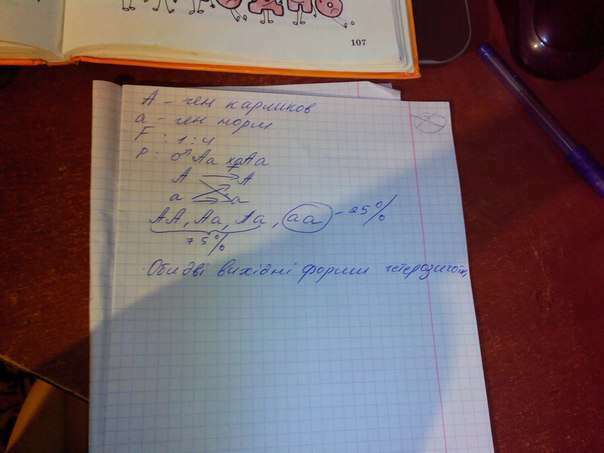 ОДНО
107
А - ген карликов
а - ген норм
F : 1:4
P: ♂Аа х♀Аа
А → А
а → а
АА, Аа, Аа, аа - 25%
75%
Обидві вихідні форми гетерозигот,